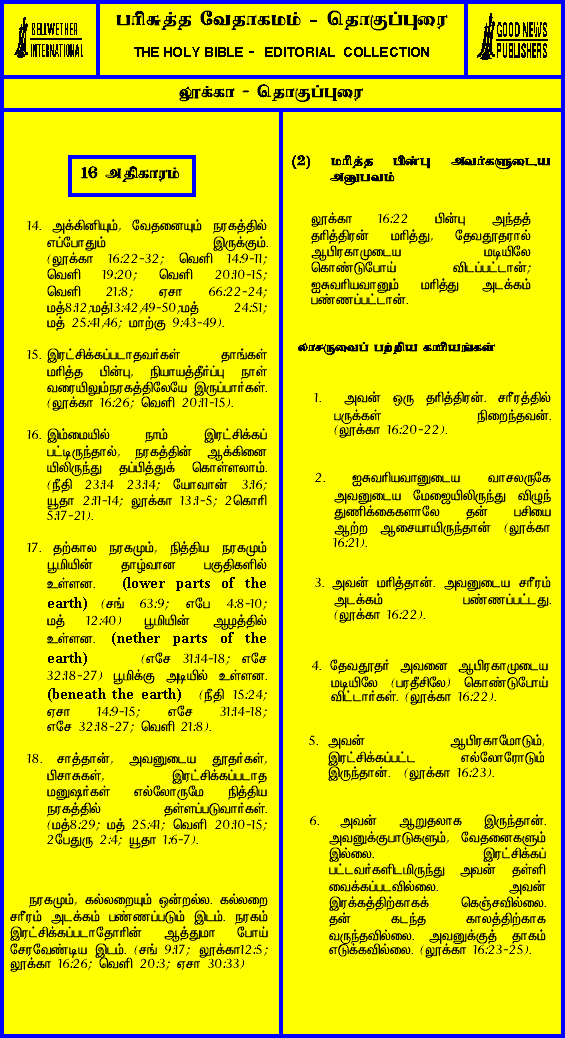 BELLWETHER
INTERNATIONAL
பரிசுத்த வேதாகமம் - தொகுப்புரை
THE HOLY BIBLE - EDITORIAL COLLECTION
GOOD NEWS
PUBLISHERS
லூக்கா - தொகுப்புரை
16 அதிகாரம்
14. அக்கினியும், வேதனையும் நரகத்தில்
எப்போதும் இருக்கும்.
(லூக்கா 16:22-32; வெளி 14:9-11;
வெளி 19:20; வெளி 20:10-15;
வெளி 21:8; ஏசா 66:22-24;
மத்8:12;மத்13:42,49-50;மத் 24:51;
மத் 25:41,46; மாற்கு 9:43-49).
15. இரட்சிக்கப்படாதவர்கள் தாங்கள்
மரித்த பின்பு, நியாயத்தீர்ப்பு நாள்
வரையிலும்நரகத்திலேயே இருப்பார்கள்.
(லூக்கா 16:26; வெளி 20:11-15).
16. இம்மையில் நாம் இரட்சிக்கப்
பட்டிருந்தால், நரகத்தின் ஆக்கினை
யிலிருந்து தப்பித்துக் கொள்ளலாம்.
(நீதி 23:14 23:14; யோவான் 3:16;
யூதா 2:11-14; லூக்கா 13:1-5; 2கொரி
5:17-21).
17. தற்கால நரகமும், நித்திய நரகமும்
பூமியின் தாழ்வான பகுதிகளில்
உள்ளன. (lower parts of the
earth) (சங் 63:9; எபே 4:8-10;
மத் 12:40) பூமியின் ஆழத்தில்
உள்ளன. (nether parts of the
earth) (எசே 31:14-18; எசே
32:18-27) பூமிக்கு அடியில் உள்ளன.
(beneath the earth) (நீதி 15:24;
ஏசா 14:9-15; எசே 31:14-18;
எசே 32:18-27; வெளி 21:8).
18. சாத்தான், அவனுடைய தூதர்கள்,
பிசாசுகள், இரட்சிக்கப்படாத
மனுஷர்கள் எல்லோருமே நித்திய
நரகத்தில் தள்ளப்படுவார்கள்.
(மத்8:29; மத் 25:41; வெளி 20:10-15;
2பேதுரு 2:4; யூதா 1:6-7).
நரகமும், கல்லறையும் ஒன்றல்ல. கல்லறை
சரீரம் அடக்கம் பண்ணப்படும் இடம். நரகம்
இரட்சிக்கப்படாதோரின் ஆத்துமா போய்
சேரவேண்டிய இடம். (சங் 9:17; லூக்கா12:5;
லூக்கா 16:26; வெளி 20:3; ஏசா 30:33)
(2) மரித்த பின்பு அவர்களுடைய
அனுபவம்
லூக்கா 16:22 பின்பு அந்தத்
தரித்திரன் மரித்து, தேவதூதரால்
ஆபிரகாமுடைய மடியிலே
கொண்டுபோய் விடப்பட்டான்;
ஐசுவரியவானும் மரித்து அடக்கம்
பண்ணப்பட்டான்.
லாசருவைப் பற்றிய காரியங்கள்
1. அவன் ஒரு தரித்திரன். சரீரத்தில்
பருக்கள் நிறைந்தவன்.
(லூக்கா 16:20-22).
2. ஐசுவரியவானுடைய வாசலருகே
அவனுடைய மேஜையிலிருந்து விழுந்
துணிக்கைகளாலே தன் பசியை
ஆற்ற ஆசையாயிருந்தான் (லூக்கா
16:21).
3. அவன் மரித்தான். அவனுடைய சரீரம்
அடக்கம் பண்ணப்பட்டது.
(லூக்கா 16:22).
4. தேவதூதர் அவனை ஆபிரகாமுடைய
மடியிலே (பரதீசிலே) கொண்டுபோய்
விட்டார்கள். (லூக்கா 16:22).
5. அவன் ஆபிரகாமோடும்,
இரட்சிக்கப்பட்ட எல்லோரோடும்
இருந்தான். (லூக்கா 16:23).
6. அவன் ஆறுதலாக இருந்தான்.
அவனுக்குபாடுகளும், வேதனைகளும்
இல்லை. இரட்சிக்கப்
பட்டவர்களிடமிருந்து அவன் தள்ளி
வைக்கப்படவில்லை. அவன்
இரக்கத்திற்காகக் கெஞ்சவில்லை.
தன் கடந்த காலத்திற்காக
வருந்தவில்லை. அவனுக்குத் தாகம்
எடுக்கவில்லை. (லூக்கா 16:23-25).